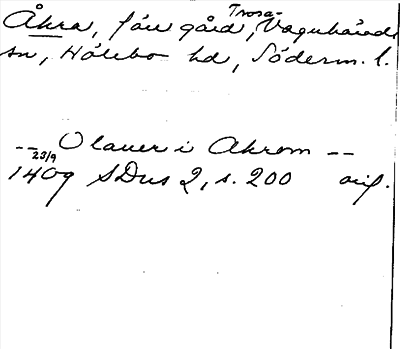 Åkra, förr gård, Trosa-Vagnhärads
sn, Hölebo hd, Söderm. l.
-- Olauer i Akrom --
23/9
1409 SDns 2, s. 200 orig.